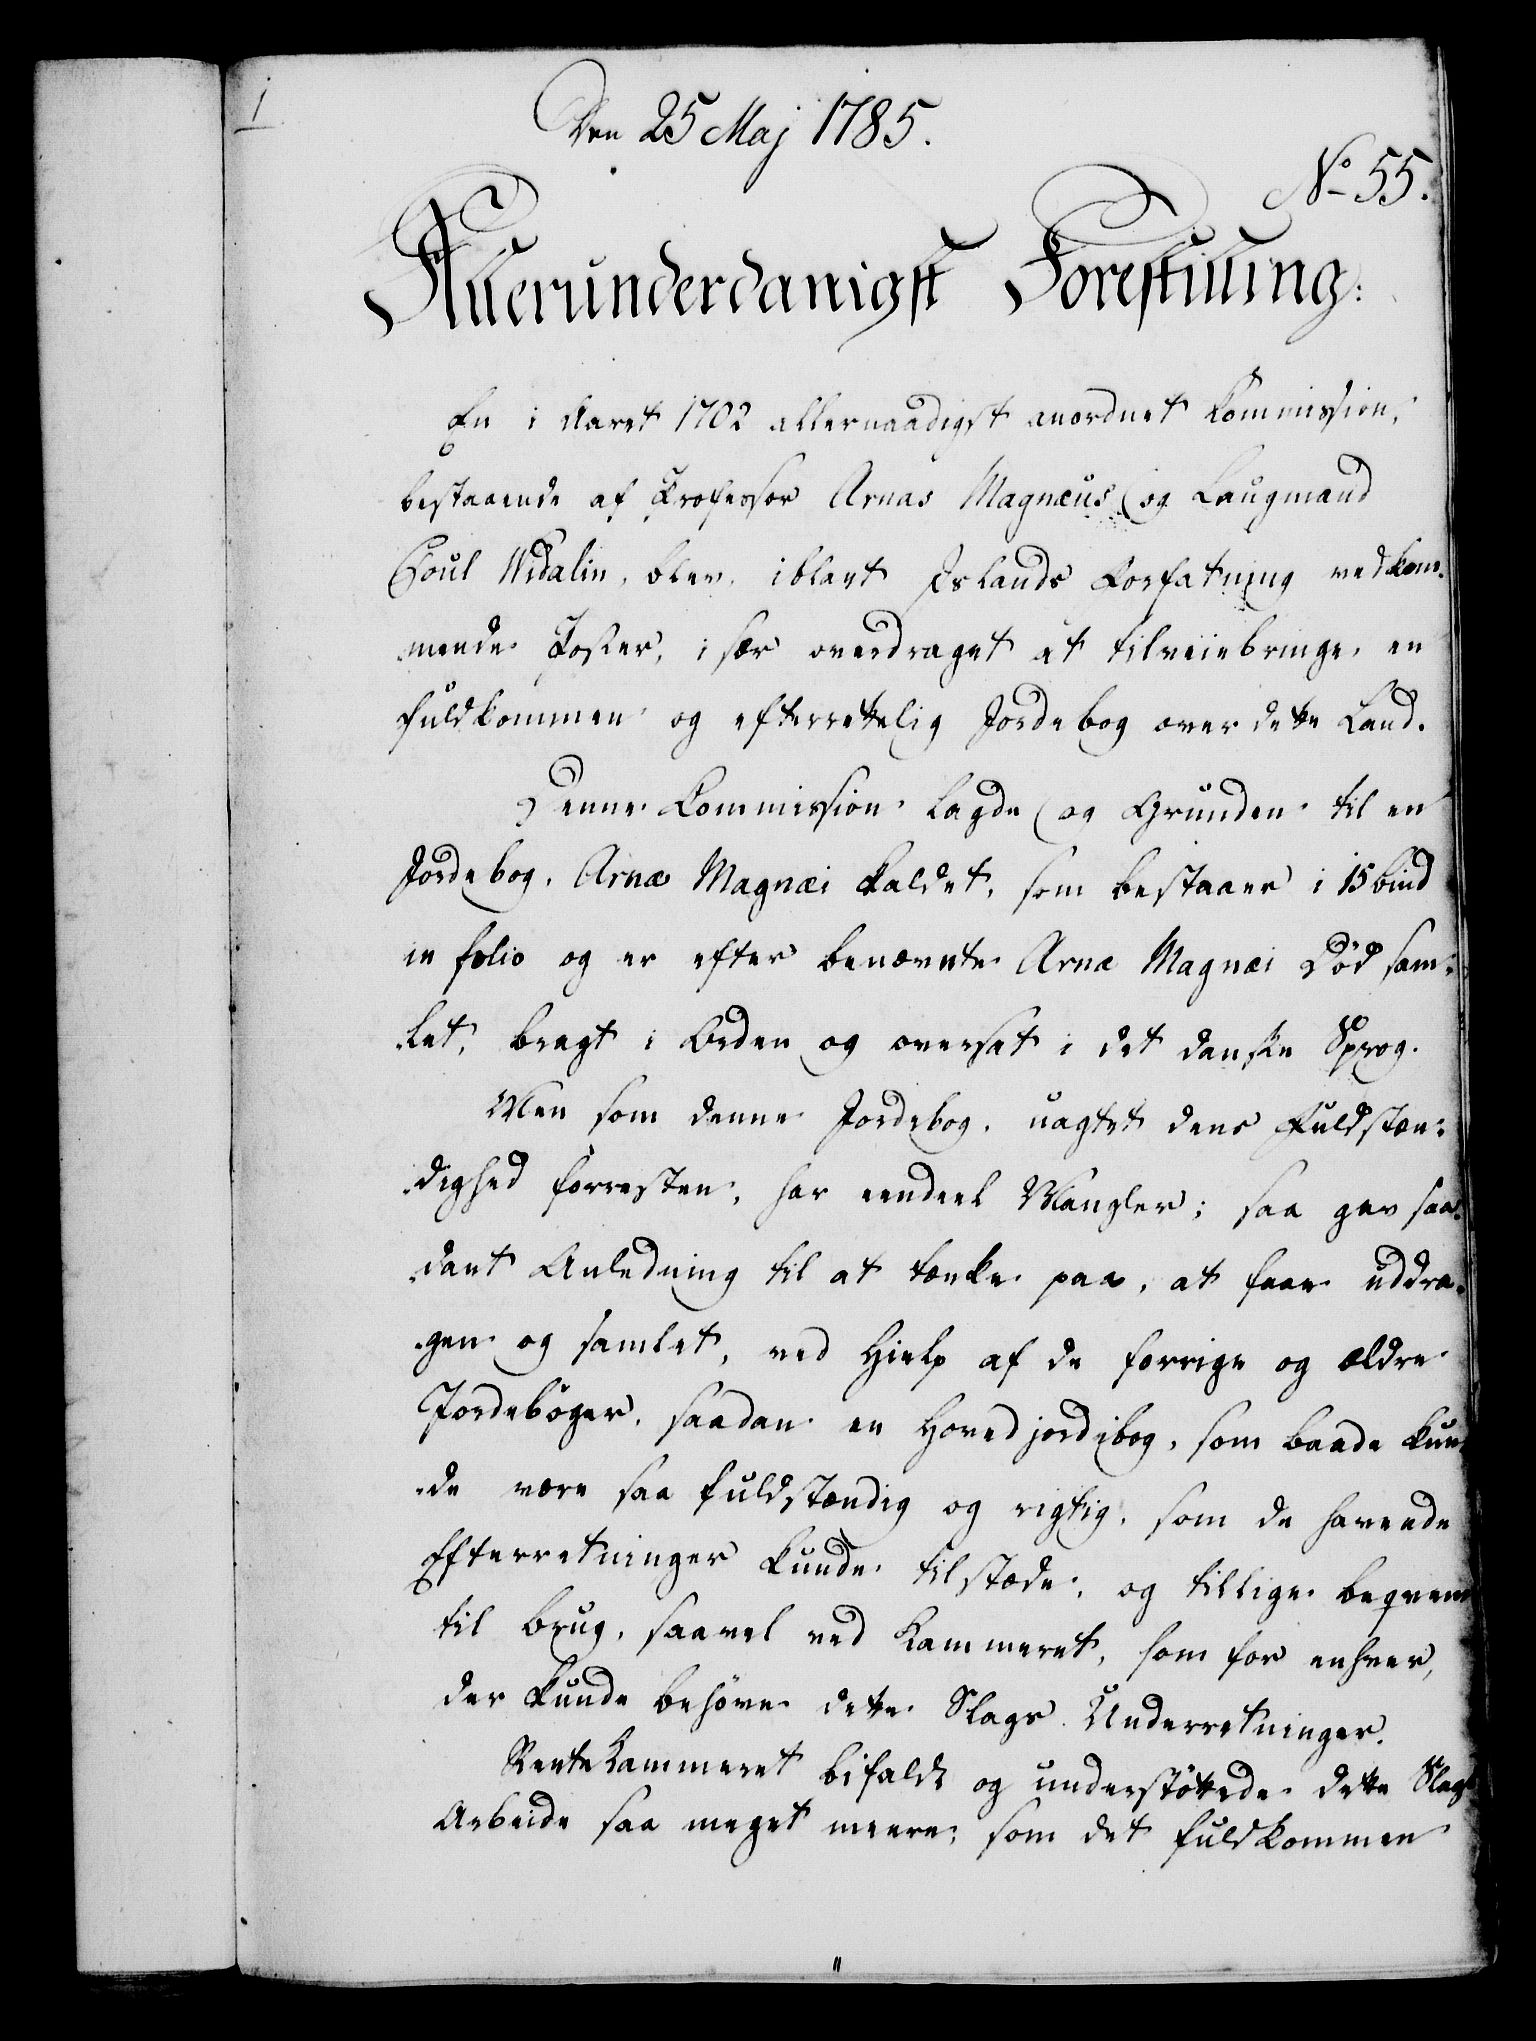 1
Den 25 Maj 1785.
No 55.
Allerunderdanigst Forestilling:
En i Aaret 1702 allernaadigst anordnet Kommission,
bestaaende af Professor Arnas Magnæus og Laugmand
Poul Widalin, blev, iblant Islands Forfatning vedkom-
mende Poster, i sær overdraget at tilveiebringe en
fuldkommen og efterrettelig Jordebog over dette Land.
Denne Kommission lagde og Grunden til en
Jordebog, Arnæ Magnæi kaldet, som bestaaer i 15 bind
in folio og er efter benævnte Arnæ Magnæi Död sam-
let, bragt i Orden og oversat i det danske Sprog.
Men som denne Jordebog, uagtet dens Fuldstæn-
dighed forresten, har eendeel Mangler; saa gav saa-
dant Anledning til at tænke paa, at faae uddra-
gen og samlet, ved Hielp af de forrige og ældre
Jordebøger, saadan en Hovedjordebog, som baade kun-
de være saa fuldstændig og rigtig, som de havende
Efterretninger kunde tilstæde, og tillige beqvem
til brug, saavel ved Kammeret, som for enhver,
der kunde behöve dette Slags Underretninger.
RenteKammeret bifaldt og understöttede dette Slags
Arbeide saa meget meere, som det fuldkommen